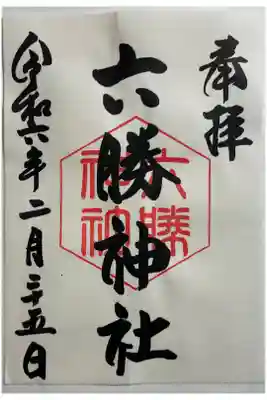 奉拝
六勝神社
六勝
神社
令和六年二月二十五日